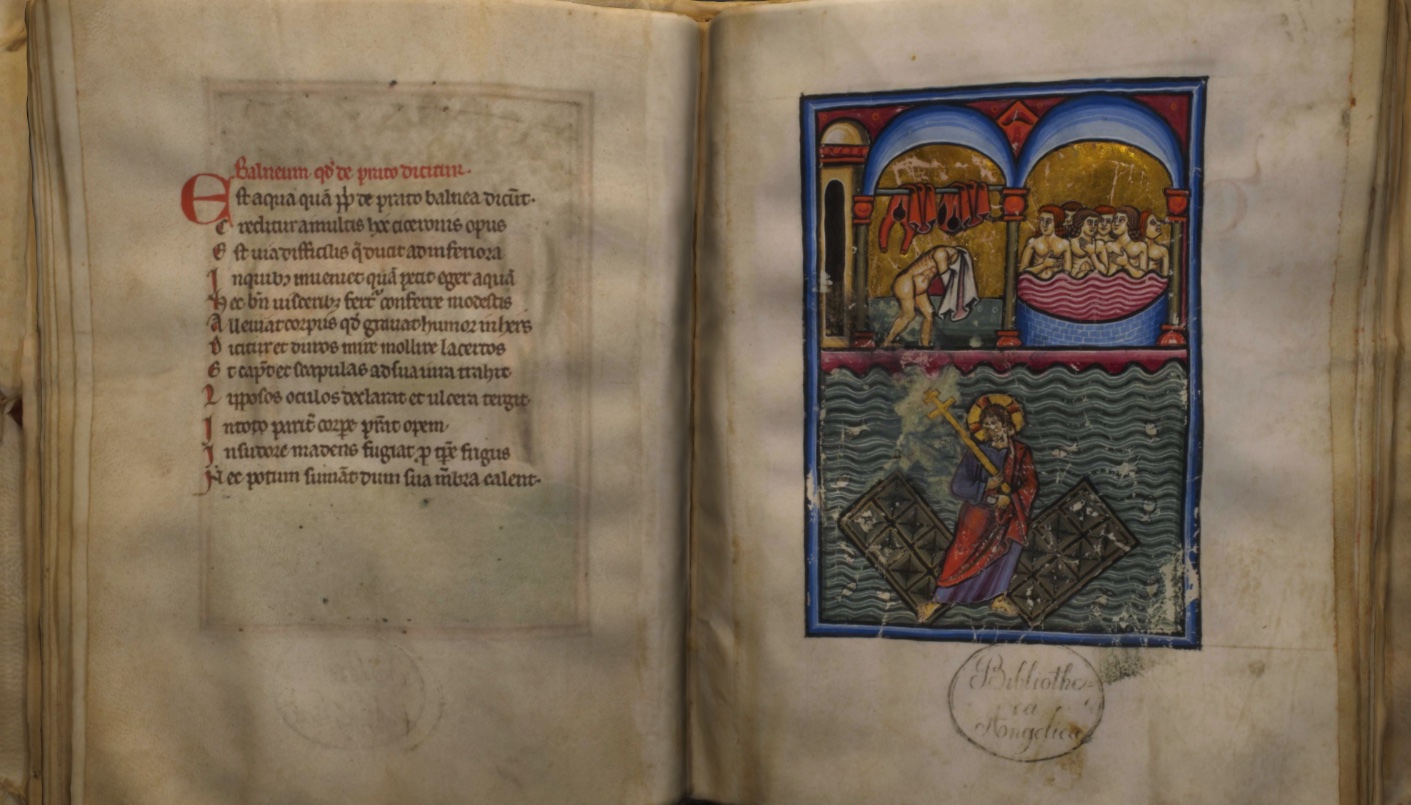 Balneum qd' de prato dicitur.
Est aqua quā p̄p de prato balnea dicūt.
Creditur a multis hec ciceronis opus
Est uia difficilis q̄ ducit ad inferiora
In quibȝ inueniet quā petit eger aquā
Hec bn̄ uisceribȝ fert' conferre molestis
Alleuiat corpus qd' grauat humor inhers
Dicitur et duros mire mollire lacertos
Et cap̄d et scapulas ad sua iura trahit
Lipposos oculos declarat et ulcera tergit.
In toto parit' corpe p̄stat opem.
In sudore madens fugiat p̄ tp̄e frigus
Nec potum sumāt dum sua m̄bra calent.
Bibliothe-
ca
Angelica